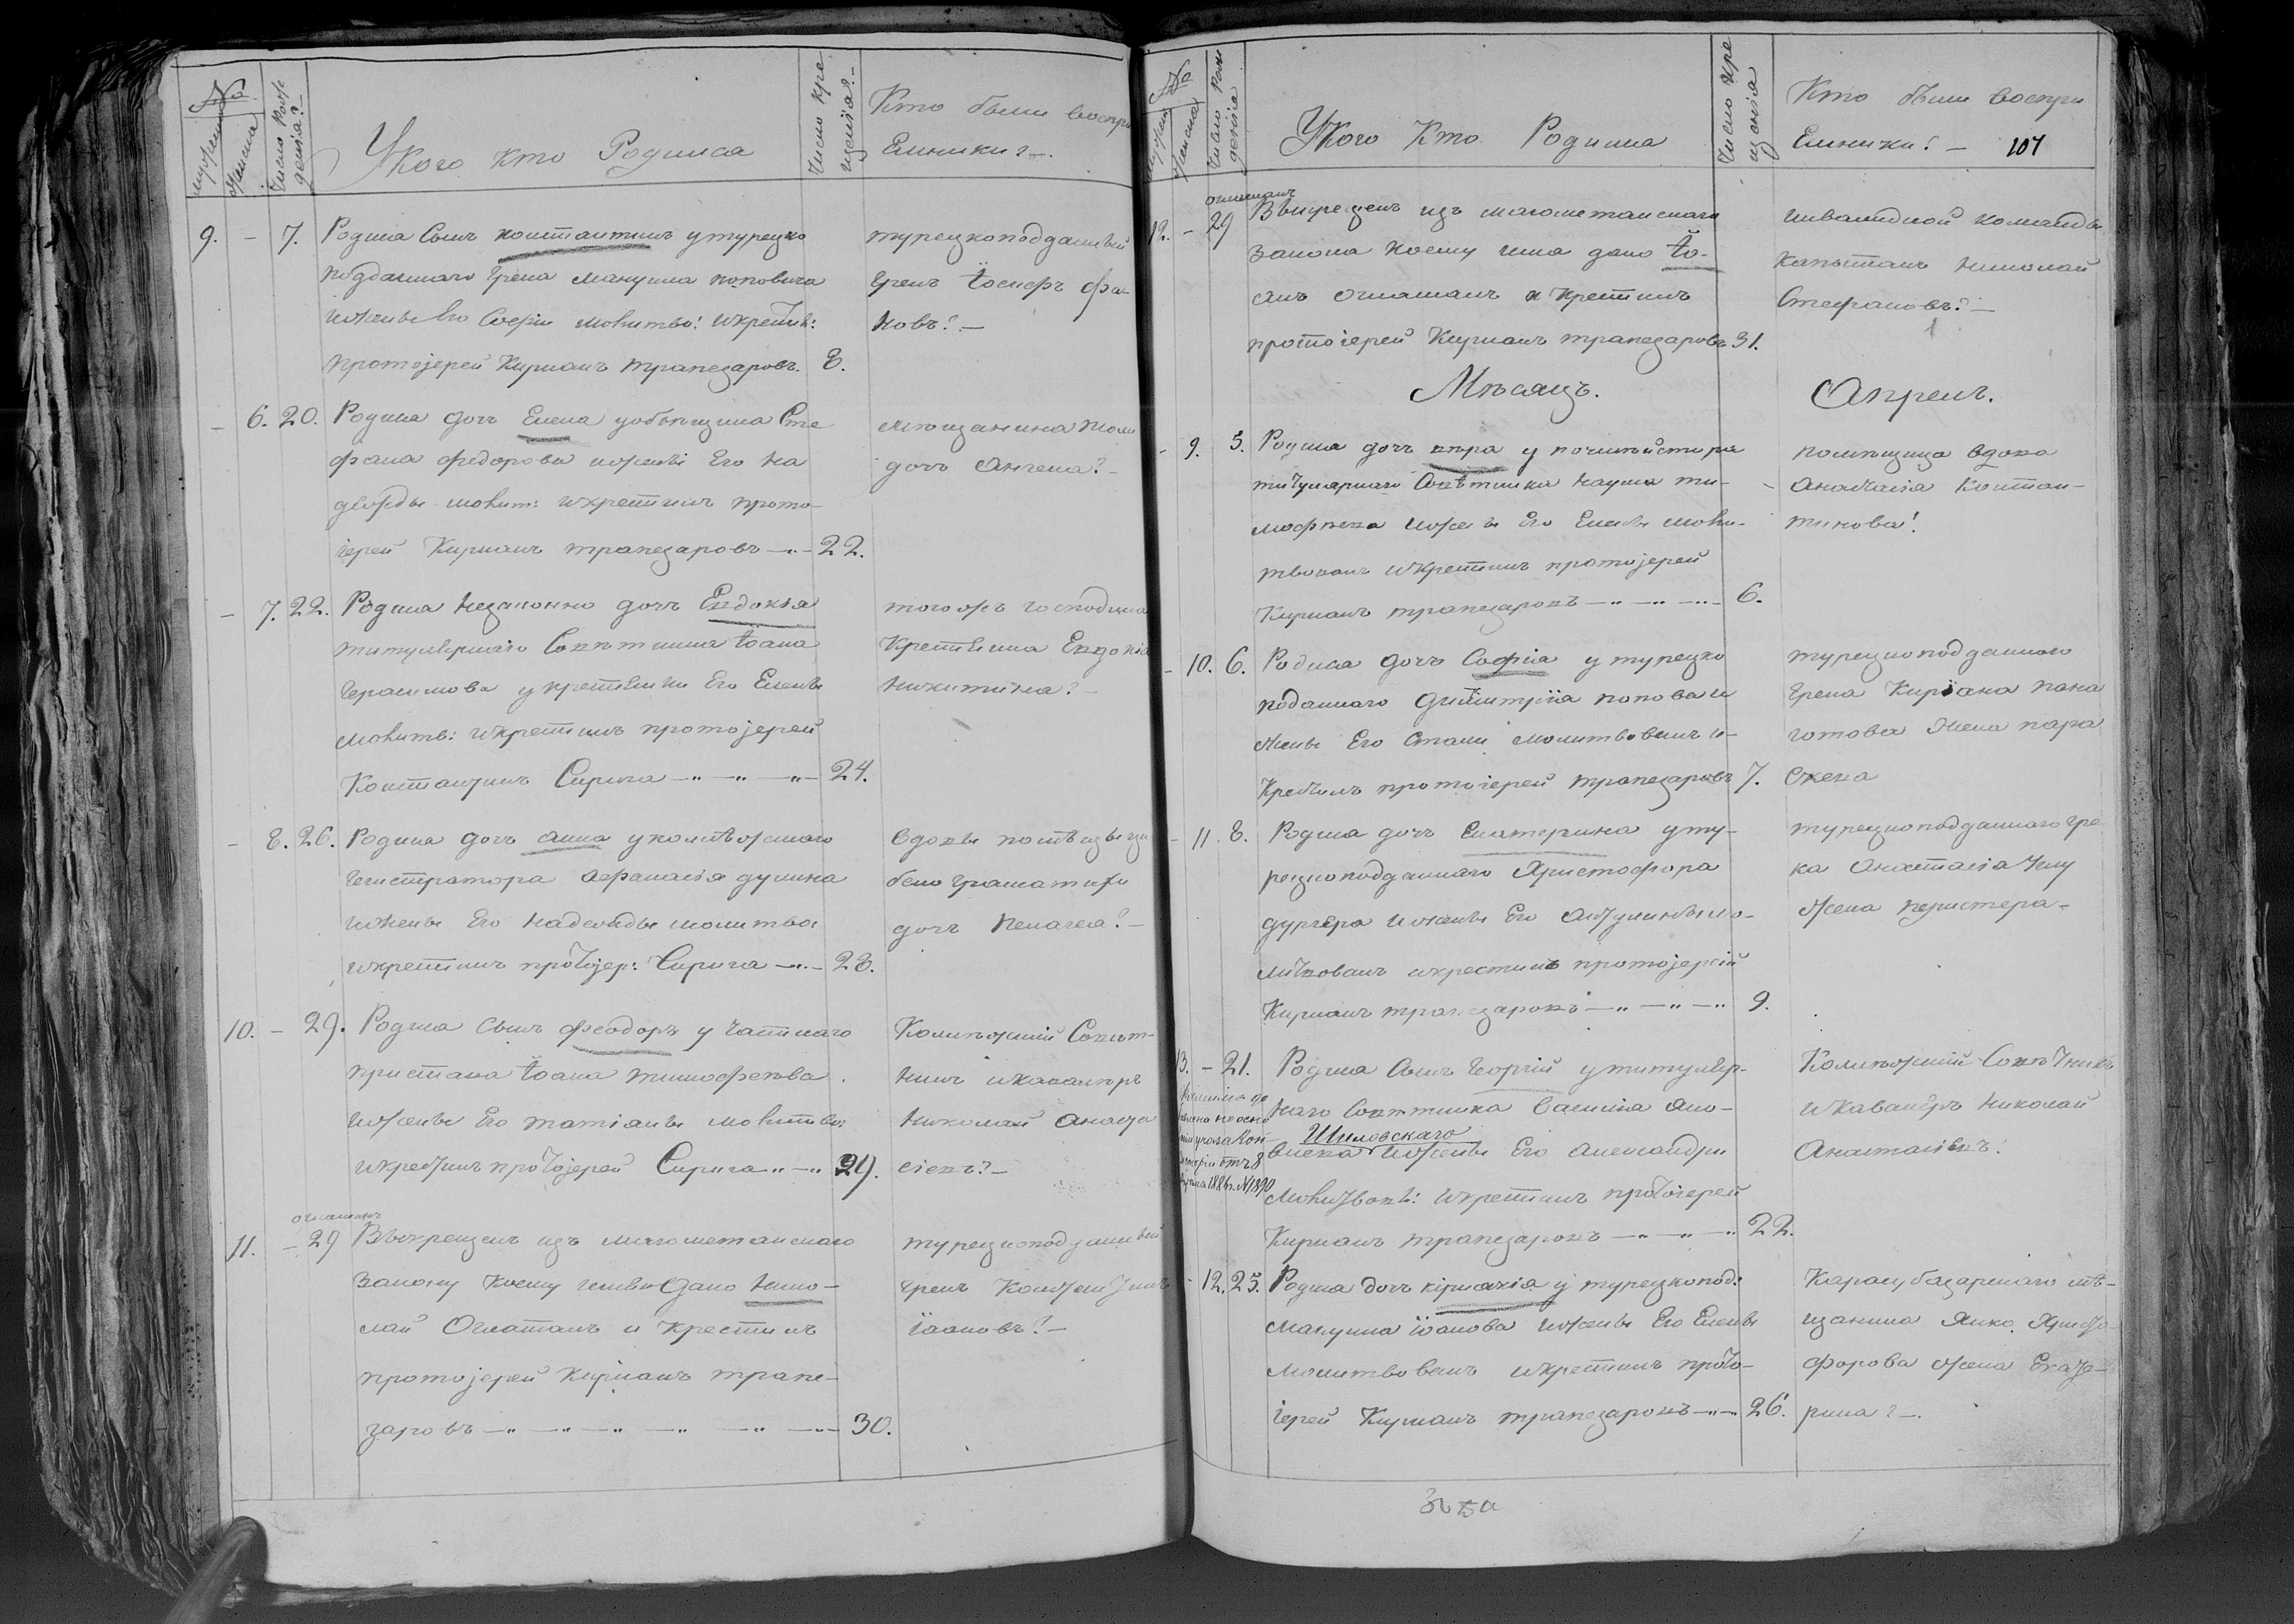 №
мужеска
женска
Число рож
денія?
У кого кто Родился
Число кре
щенія?
Кто были воспри
Емники?
9. - 7. Родилса Сынъ константинъ у турецко
подданнаго Грека Мануила поповича
и жены Его Софіи молитво: и крестил:
протоіерей Куриакъ трапезаровъ. 8.
турецкоподданный
Грекъ Іосифъ
ковъ? —
- 6. 20. Родилса дочъ Елена Сте
фана федорова и жены Его На
дежды молит: и крестилъ прото-
іерей Куриакъ трапезаровъ 22.
мещанина
дочъ Ангела?
- 7. 22. Родилса Незаконно дочъ Евдокія
титулярнаго Советника Іоана
Герасимова у крепостной Его Елены
молитв: и крестилъ протоіерей
Константинъ Сирига 24.
тогожъ господина
Евдокія
Никитина?
- 8. 26. Родилса дочъ анна у колежскаго
Регистратора Афанасія
и жены Его Надежды молитво
и крестилъ протоіер: Сирига 28.
вдовы помещицы
дочъ Пелагея?
10. - 29. Родилса Сынъ феодоръ у частнаго
пристава Іоана тимофеева
и жены Его татіаны молитво:
и крестилъ протоіерей Сирига 29.
Колежский Совет-
никъ и кавалеръ
Николай Анаста
сіевъ? —
11. - 29 оглашенъ
Выкрещенъ изъ магометанскаго
закону коему имя дано Нико-
лай Оглашалъ и Крестилъ
протоіерей Куріакъ трапе-
заровъ 30.
турецкоподданный
грекъ Константинъ
Іоановъ? —
№
мужеска
женска
Число рож
денія
У кого Кто Родилса
Число кре
щенія
Кто были воспри
Емники? — 107
12. - 29 оглашенъ
Выкрещенъ изъ магометанскаго
закона коему имя дано Іо-
анъ Оглашалъ и крестилъ
протоіерей Куриакъ трапезаровъ 31.
инвалидной команды
капытанъ Николай
Стефановъ?
Мѣсяцъ. Апрель.
- 9. 5. Родилса дочъ кира у почмейстера
титулярнаго Советника Наума ти-
мофеева и жены Его Елены моли-
твовалъ и крестилъ протоіерей
Куриакъ трапезаровъ 6.
помещица вдова
Анастасія Констан-
тинова!
- 10. 6. Родилса дочъ Софіа у турецко
поданнаго Димитріа попова и
жены Его молитвовалъ и
Крестилъ протоіерей трапезаровъ 7.
турецкоподданного
Грека Киріака пана
готова жена пара
скева
- 11. 8. Родилса дочъ Екатерина у ту-
рецкоподданнаго Христофора
и жены Его мо-
литвовалъ и крестилъ протоіерей
Куриакъ трапезаровъ 9.
турецкоподданнаго гре
ка Анастасіа
жена перистера
13. - 21. Родилса Сынъ Георгій у титуляр-
наго Советника Василіа Яно-
Шиловскаго
и жены Его Александри
Молитвов: и крестилъ протоіерей
Куриакъ трапезаровъ 22.
Колежский Советникъ
и Кавалеръ Николай
Анастасіевъ:
- 12. 25. Родилса дочъ киріакіа у турецкопод:
Мануила Іоанова и жены Его Елены
Молитвовалъ и крестилъ прото-
іерей Куриакъ трапезаровъ 26.
Карасубазарскаго мѣ-
щанина Янко Христо
форова жена Екате-
рина? —